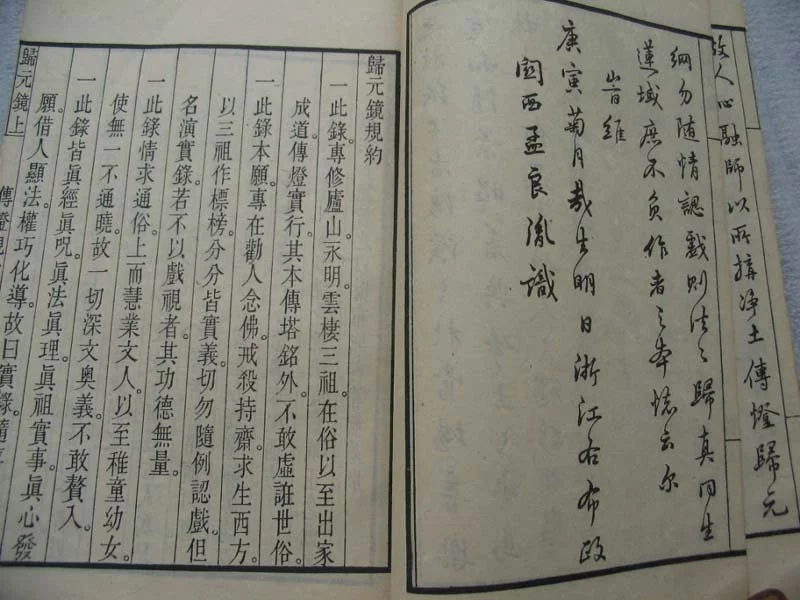 故人心融師以所搆淨土傳燈歸元
綱勿隨情認戲則法〻歸真同生
蓮域庶不負作者之本懷云尔
旹維
庚寅菊月哉生明日浙江右布政
関西孟良胤識
歸元鏡規約
一此錄專修廬山永明雲棲三祖。在俗以至出家
成道傳燈實行。其本傳塔銘外。不敢虛誑世俗。
一此錄本願。專在勸人念佛。戒殺持齋。求生西方。
以三祖作標榜。分分皆實義。切勿隨例認戲。但
名演實錄。若不以戲視者。其功德無量。
一此錄情求通俗。上而慧業文人。以至稚童幼女。
使無一不通曉。故一切深文奧義。不敢贅入。
一此錄皆眞經眞呪。眞法眞理。眞祖實事。眞心發
願。借人顯法。權巧化導。故曰實錄。隨
歸元鏡上
傳燈規